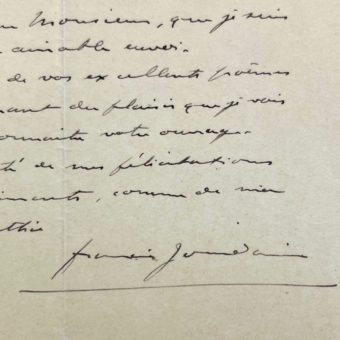 Monsieur, que je suis
aimable envoi.
de vos excellents poèmes
du plaisir que je vais
connaître votre ouvrage.
de mes félicitations
comme de mon
thie
francis Jourdain